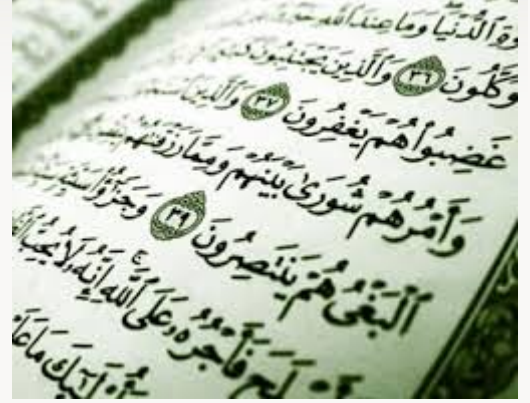 ٱلدُّنْيَا وَمَا عِندَ ٱللَّهِ
وَكَّلُونَ ٣٦ وَٱلَّذِينَ يَجْتَنِبُونَ
غَضِبُوا۟ هُمْ يَغْفِرُونَ ٣٧ وَٱلَّذِينَ
وَأَمْرُهُمْ شُورَىٰ بَيْنَهُمْ وَمِمَّا رَزَقْنَٰهُمْ
ٱلْبَغْىُ هُمْ يَنتَصِرُونَ ٣٩ وَجَزَٰٓؤُا۟
فَأَجْرُهُۥ عَلَى ٱللَّهِ إِنَّهُۥ لَا يُحِبُّ